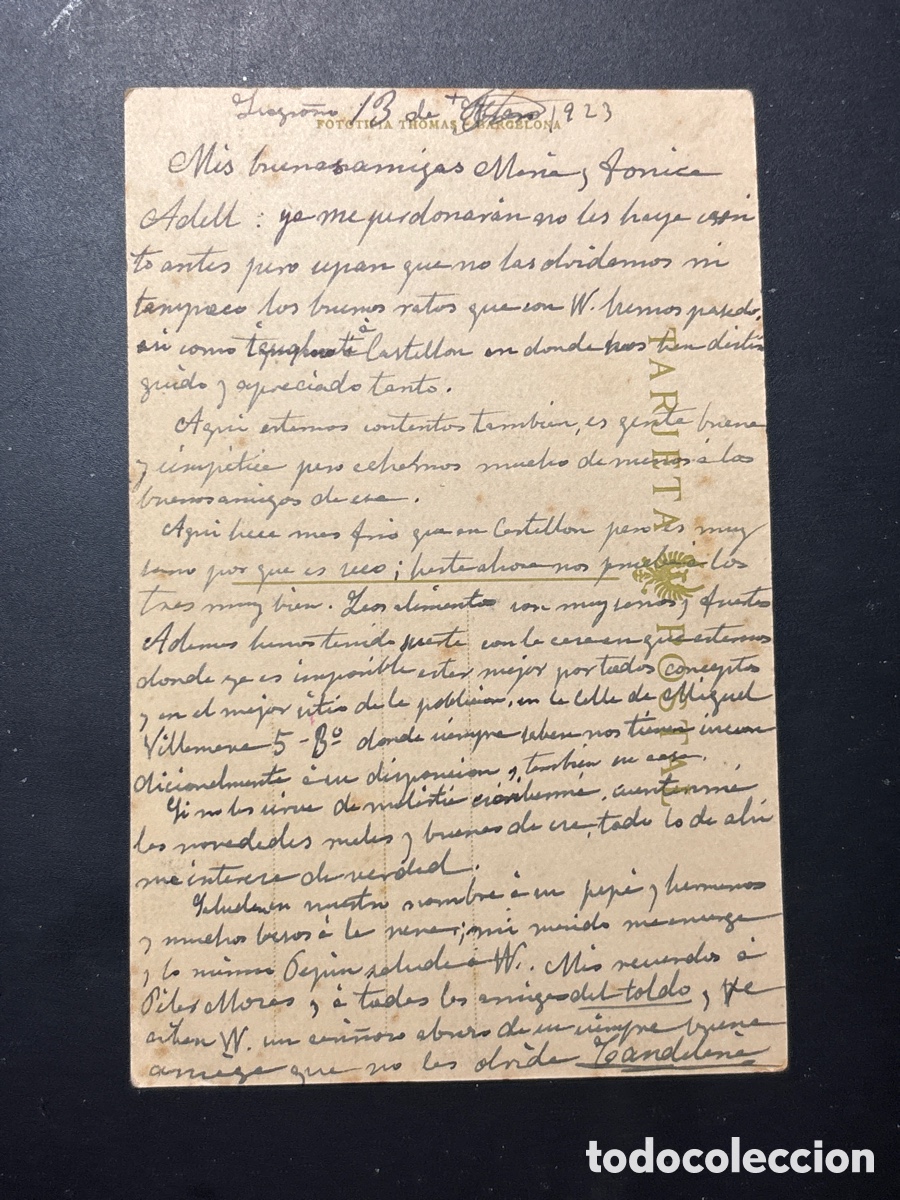 Logroño 13 de 1923
FOTOTIPIA THOMAS - BARCELONA
Mis buenas amigas Maria y
Adell: ya me perdonarán no les haya escri
to antes pero sepan que no las olvidamos ni
tampoco los buenos ratos que con V. hemos pasado,
asi como á Castellon en donde nos han distin
guido y apreciado tanto.
Aqui estamos contentos tambien, es gente buena
y simpática pero echamos mucho de menos á los
buenos amigos de esa.
Aqui hace mas frio que en Castellon pero es muy
sano por que es seco; hasta ahora nos prueba á los
tres muy bien. Los alimentos son muy sanos y fuertes
Ademas hemos tenido suerte con la casa en que estamos
donde ya es imposible estar mejor por todos conceptos
y en el mejor sitio de la poblacion, en la Calle de Miguel
Villanueva 5-3º donde siempre saben nos tienen incon
dicionalmente á su disposicion y tambien su casa.
Si no les sirve de molestia escribanme, cuentenme
las novedades malas y buenas de esa todo lo de ahi
me interesa de verdad.
Saluden en nuestro nombre á su papá y hermanos
y muchos besos á la nena; mi marido me encarga
y lo mismo Pepin salude á V. Mis recuerdos á
Pilar Moras y á todas las amigas del toldo, y
V. un cariñoso abrazo de su siempre buena
amiga que no les olvida Candelaria
TARJETA POSTAL
todocoleccion